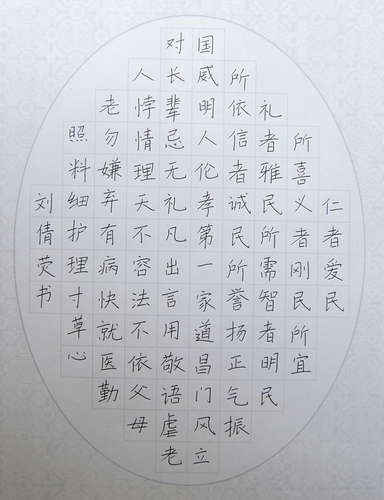 仁者爱民
所喜义者刚民所宜
礼者雅民所需智者明民
所依信者诚民所誉扬正气振
国威明人伦孝第一家道昌门风立
对长辈忌无礼凡出言用敬语虐老
人悖情理天不容法不依父母
老勿嫌弃有病快就医勤
照料细护理寸草心
刘倩荧书